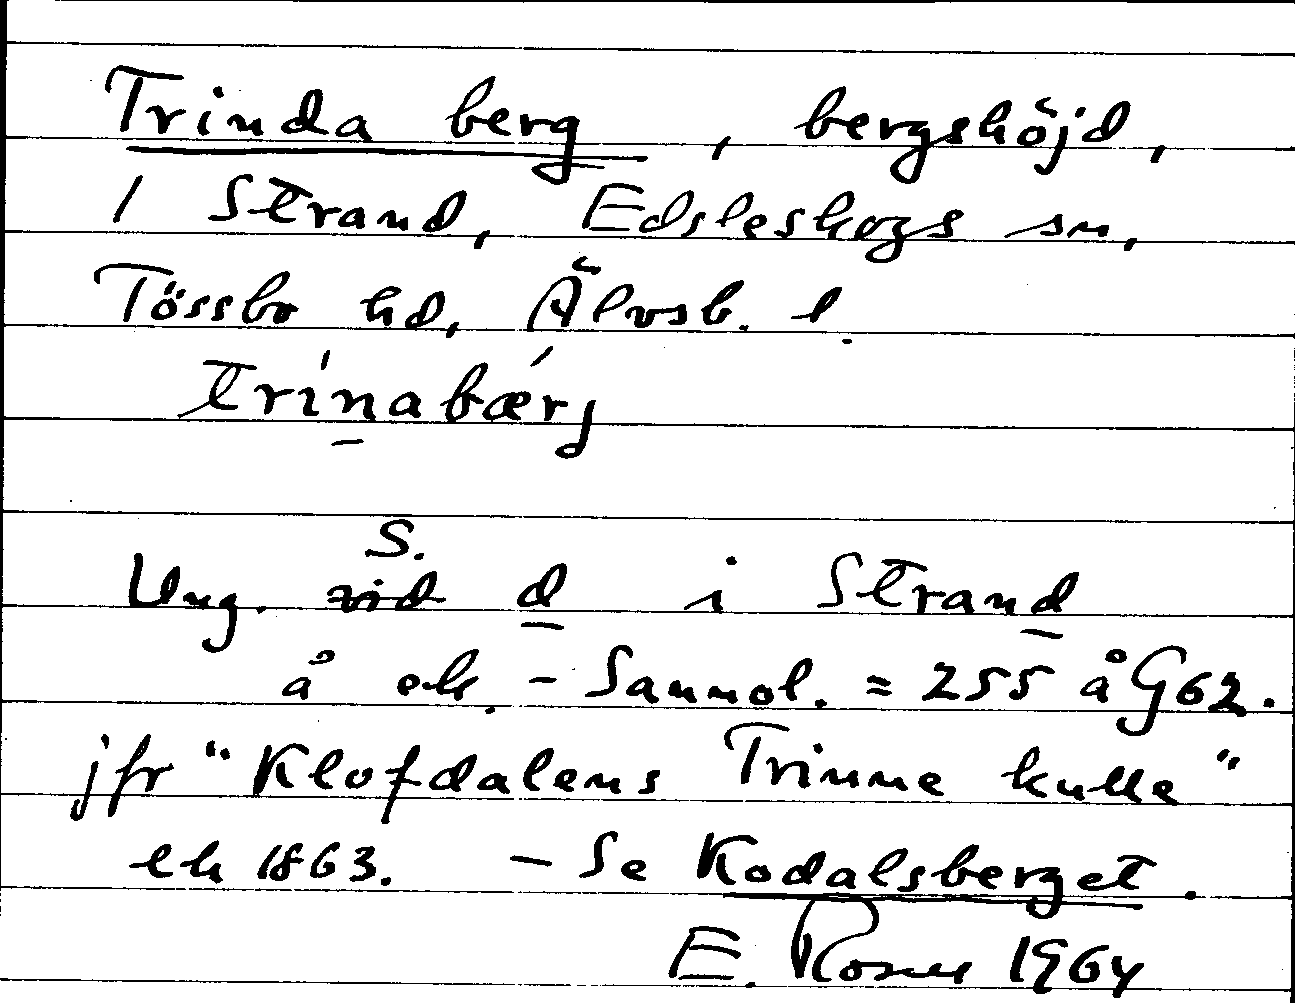 Trinda berg, bergshöjd,
i Strand, Edsleskogs sn,
Tössbo hd, Älvsb. l.
trìnabǽrj
S.
Ung. vid d i Strand
å ek. - Sannol. = 255 å G62.
jfr "Klofdalens Trinne kulle"
ek 1863. - Se Kodalsberget.
E. 1964